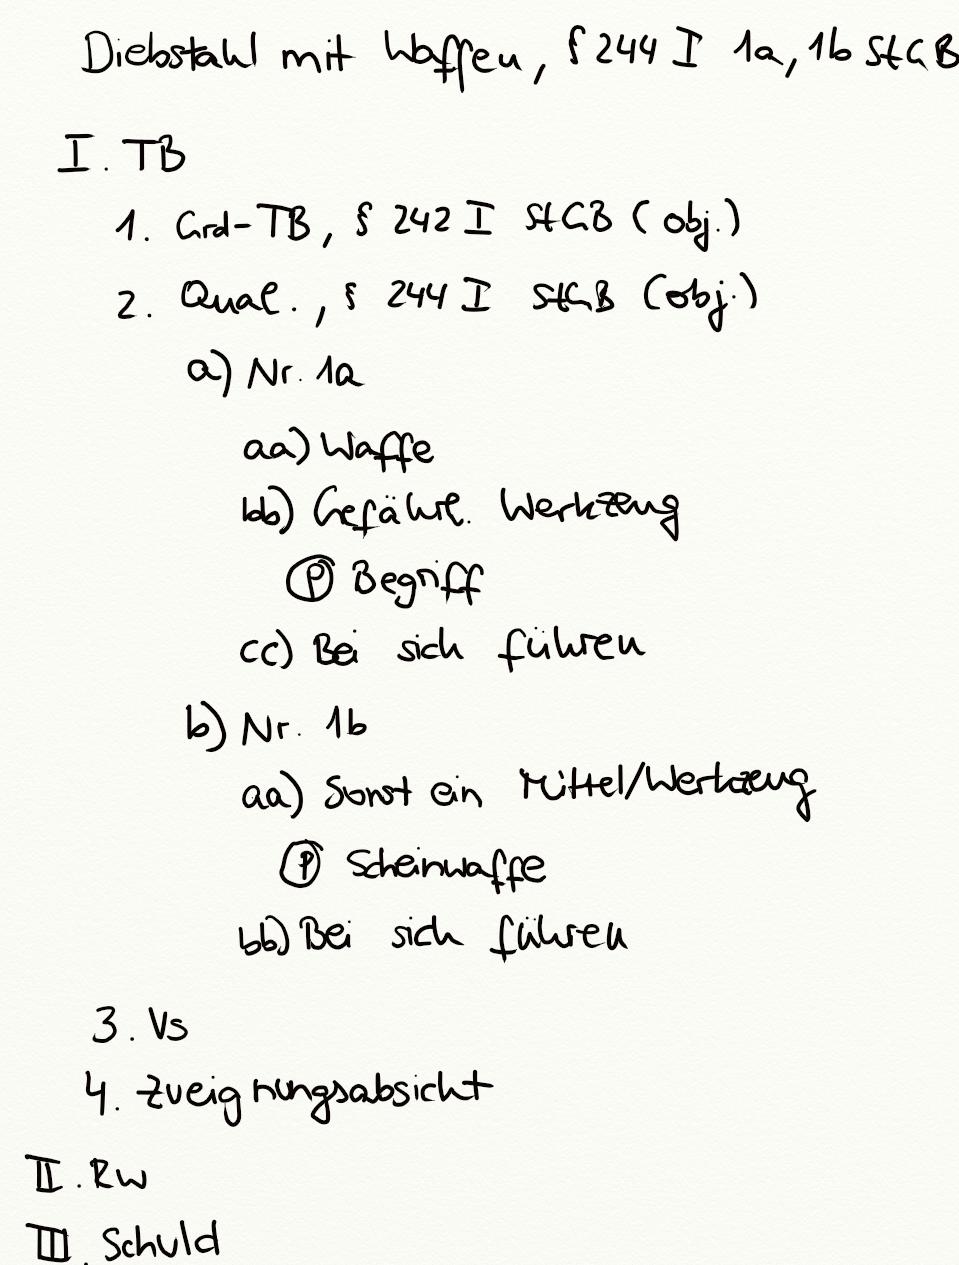 Diebstahl mit Waffen, § 244 I 1a, 1b StGB
I. TB
1. Grd-TB, § 242 I StGB (obj.)
2. Qual., § 244 I StGB (obj.)
a) Nr. 1a
aa) Waffe
bb) Gefährl. Werkzeug
Ⓟ Begriff
cc) Bei sich führen
b) Nr. 1b
aa) Sonst ein Mittel/Werkzeug
Ⓟ Scheinwaffe
bb) Bei sich führen
3. Vs
4. Zueignungsabsicht
II. RW
III. Schuld